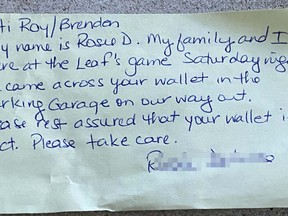 ti Roy/Brendon
y name is Rosie D. My family and I
ere at the Leaf's game Saturday nig
came across your wallet in the
rking Garage on our way out.
ease rest assured that your wallet i
ct. Please take care.